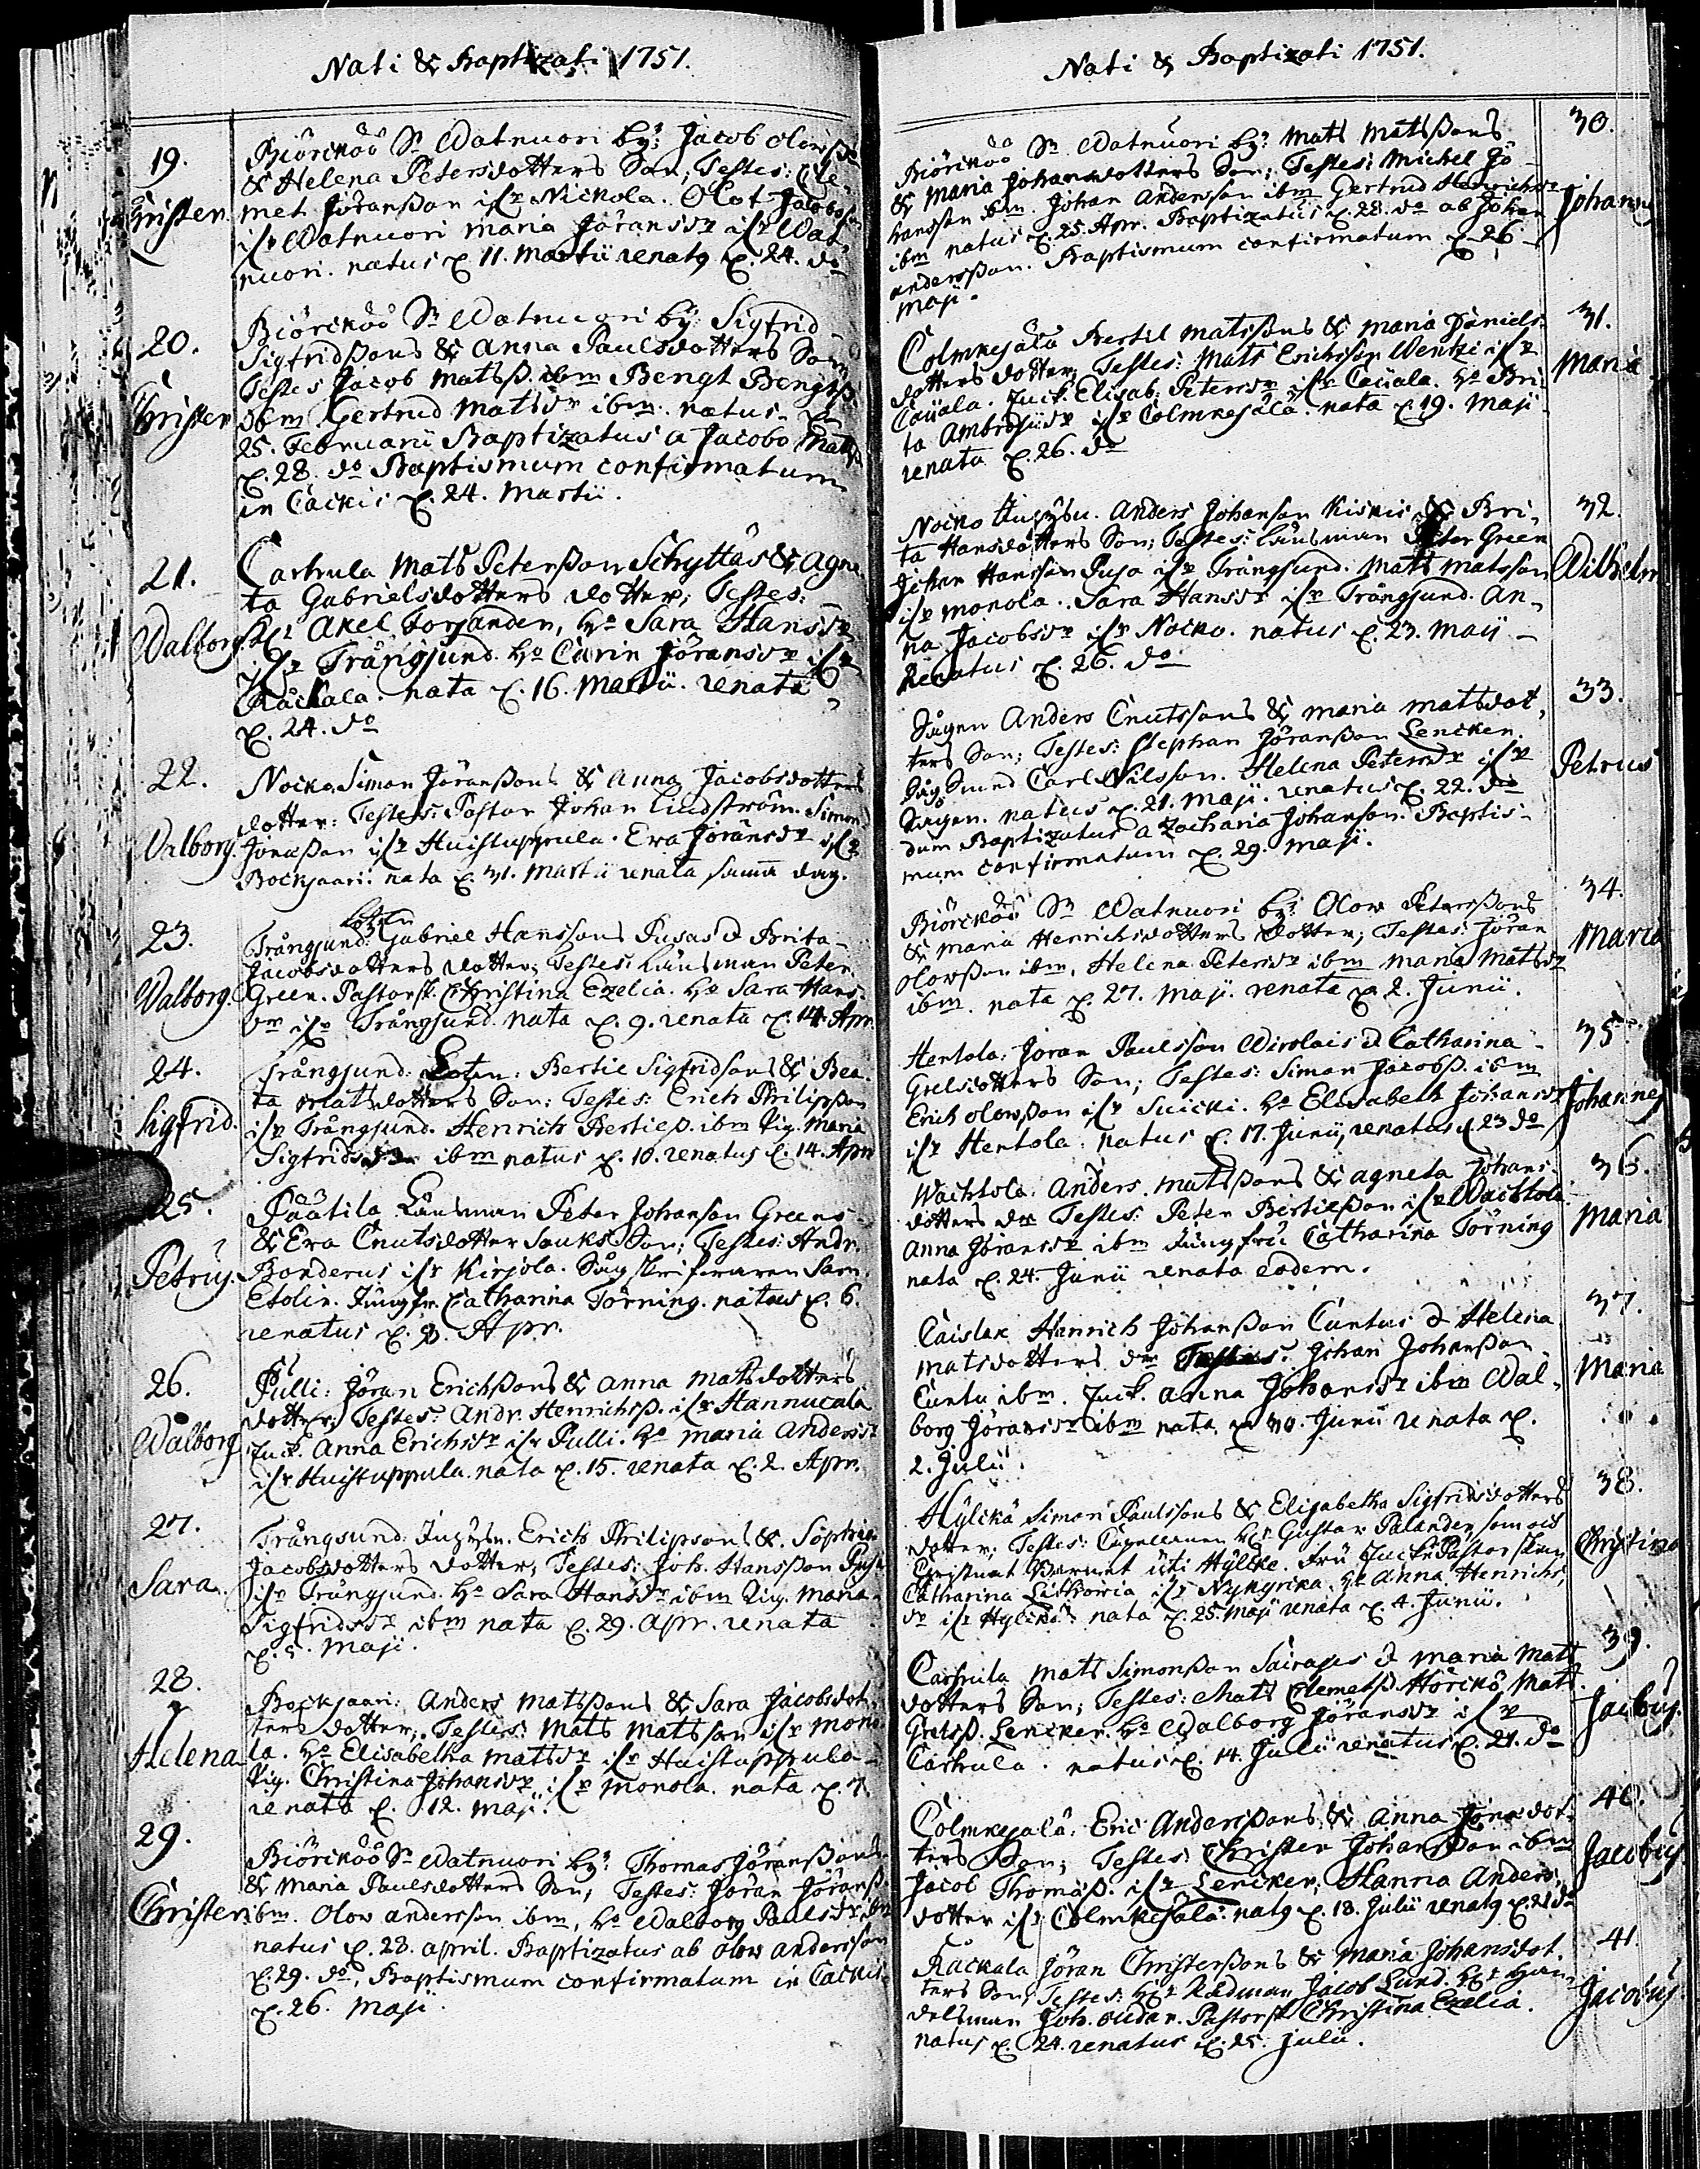 Nati & Baptizati 1751.
19.
Christer.
Biörcköö Sn Watnuori by: Jacob Olofß
& Helena Petersdotters Son, Testes: Cle-
met Jöranßon ifr Nickola. Olof Jacobsson
ifr Watnuori Maria Joranssdr ifr Wat-
nuori. natus d. 11. Martii renatg d. 24. do
20.
Christer
Biörcköö Sn Watnuori by: Sigfrid
Sigfridßons & Anna Paulsdotters Son
Testes Jacob Matsß. ibm Bengt Bengtß
ibm. Gertrud Matsdr ibm. natus d.
25. Februarii Baptizatus a Jacobo Matsß
d. 28. do Baptismum confirmatum
in Cackis d. 24. Martii.
21.
Walborg.
Carhula Mats Peterßon Schyttäs & Agne
ta Gabrielsdotters dotter, Testes:
Hr Axel Forsanden, Ho Sara Hansdr
ifr Trångsund. Ho Carin Jöransdr ifr
Räckala. nata d. 16. Martii. renata
d. 24. do
22.
Valborg.
Nocko. Simon Jöranßons & Anna Jacobsdotters
dotter: Testes: Pastor Johan Lindström. Simon
Jonaßon ifr Huistuppula. Eva Jöransdr ifr
Bockjaari. nata d. 31. Martii renata samma dag.
23.
Walborg.
Trångsund: Gabriel Hanssons Pusas & Brita
Jacobsdotters dotter; Testes: Länsman Peter
Green. Pastorsk. Christina Ezelia. Ho Sara Hans-
dr ifr Trångsund. nata d. 9. renata d. 14. Apr.
24.
Sigfrid.
Trångsund: Lotzn: Bertil Sigfridsons & Bea-
ta Matsdotters Son: Testes: Erich Philipßon
ifr Trångsund. Henrich Bertilß. ibm Pig. Maria
Sigfridsdr ibm natus d. 10. renatus d. 14. Apr
25.
Petrus.
Päätila Länsman Peter Johanson Greens
& Eva Cnutsdotter Sauks Son; Testes: Andr.
Bonderus ifr Kirjola. Sågskrifwaren Sam.
Etolin. Jungfr. Catharina Törning. natus d. 6.
renatus d. 8. Apr.
26.
Walborg
Pulli: Jöran Erichßons & Anna Matsdotters
dotter; Testes: Andr. Henrichsß. ifr Hannucala
Juck. Anna Erichsdr ifr Pulli. Ho Maria Andersdr
ifr Huistuppula. nata d. 15. renata d. 2. Apr.
27.
Sara.
Trångsund. Erich Philipsons & Sophia
Jacobsdotters dotter, Testes: Joh. Hansson Pusa
ifr Trångsund. Ho Sara Hansdr ibm Pig. Maria
Sigfridsdr ibm nata d. 29. Apr. renata
d. 5. Maji.
28.
Helena
Bockjaari: Anders Matsßons & Sara Jacobsdot-
ters dotter; Testes: Mats Matsson ifr Mono
la. Ho Elisabetha Matsdr ifr Huistuppula
Pig. Christina Johansdr ifr Monola. nata d. 7.
renata d. 12. Maji.
29.
Christer
Biörcköö Sn Watnuori by: Thomas Jöranßons
& Maria Paulsdotters Son, Testes: Jöran Jöranß.
ibm. Olov Andersson ibm, Ho Walborg Paulsdr ibm
natus d. 28. April. Baptizatus ab Olov Andersson
d. 29. do, Baptismum confirmatum in Cackis
d. 26. Maji.
Nati & Baptizati 1751.
30.
Johannes
Biörcköö Sn Watnuori by: Mats Matsßons
& Maria Johansdotters Son; Testes: Michel Jo-
hansson ibm. Johan Andersson ibm Gertrud Henrichsdr
ibm natus d. 25. Apr. Baptizatus d. 28. do ab Johan
Andersßon. Baptismum confirmatum d. 26
Maji.
31.
Maria
Colmkesälä Bertil Matsßons & Maria Daniels-
dotters dotter, Testes: Mats Erichsson Wentzi ifr
Caüala. Juck. Elisab. Petersdr ifr Caüala. Ho Bri
ta Ambrosiidr ifr Colmkesälä. nata d. 19. Maji
renata d. 26. do
32.
Wilhelm
Nocko Anders Johanson Kiskis & Bri-
ta Hansdotters Son; Testes: Länsman Peter Green
Johan Hansson Pusa ifr Trångsund. Mats Matsson
ifr Monola. Sara Hansdr ifr Trångsund. An-
na Jacobsdr ifr Nocko. natus d. 23. Maij
Renatus d. 26. do
33.
Petrus
Sågen Anders Cnutssons & Maria Matsdot-
ters Son; Testes: Stephan Jöranßon Lencken.
Carl Nilsson. Helena Petersdr ifr
Sågen. natus d. 21. Maji. renatus d. 22. do
dum Baptizatus a Zacharia Johanson. Baptis-
mum confirmatum d. 29. Maji.
34.
Maria
Biörcköö Sn Watnuori by: Olow Petersßons
& Maria Henrichsdotters dotter; Testes: Jöran
Olowßon ibm, Helena Petersdr ibm Maria Matsdr
ibm. nata d. 27. Maji. renata d. 2. Junii.
35
Johannes
Hentola: Joran Paulsson Wirolais & Catharina
Grelsdotters Son; Testes: Simon Jacobß. ibm
Erich Olowßon ifr Suicki. Ho Elisabeth Johansdr
ifr Hentola. natus d. 17. Junii, renatus d 23 do
36.
Maria
Wachtola: Anders Matsßons & Agneta Johans-
dotters dr Testes: Peter Bertilßon ifr Wachtola
Anna Jöransdr ibm Jungfru Catharina Törning
nata d. 24. Junii renata eodem.
37.
Maria
Caislax Henrich Johanßon Cuntus & Helena
Matsdotters dr Testes: Johan Johanßon
Cuntu ibm. Juck. Anna Johansdr ibm Wal-
borg Jöransdr ibm nata d 30. Junii renata d.
2. Julii.
38.
Christina
Hylckä Simon Paulssons & Elisabetha Sigfridsdotters
dotter; Testes: Capellanen Hr Gustav Palander, som ock
Christnat Barnet uti Hylcke. Fru Juck. Pastorskan
Catharina Lithowia ifr Nykyrka. Ho Anna Henrichs-
dr ifr Hylckä. nata d. 25. Maji renata d. 4. Junii.
39.
Jacobus.
Carhula Mats Simonßon Sairases & Maria Mats
dotters Son; Testes: Mats Clemetß Hörckö Mats
Grelsß. Lencken. Ho Walborg Jöransdr ifr
Carhula. natus d. 14. Julii renatus d. 21. do
40.
Jacobus.
Colmkesälä: Eric Andersßons & Anna Jönsdot-
ters Son; Testes: Christer Johanßon ibm
Jacob Thomäß. ifr Lencken; Hanna Anders-
dotter ifr Colmkesälä. natg d. 18. Julii renatg d. 21 do
41.
Jacobus.
Räckala Jöran Christerßons & Maria Johansdot-
ters Son; Testes: Hr Rådman Jacob Lund. Hr Han-
delsman Joh. Pastorsk Christina Ezelia.
natus d. 24. renatus d. 25. Julii.